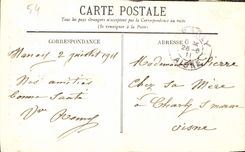 54
CARTE POSTALE
Tous les pays étrangers n'acceptent pas la Correspondance au recto
(Se renseigner à la Poste)
CORRESPONDANCE
ADRESSE
Nanay 2 juillet 1911
Nos amitiés
Bonne Santé
Mademoiselle Pierre
Chez Sa Mère
à Charly s/ marne
Aisne